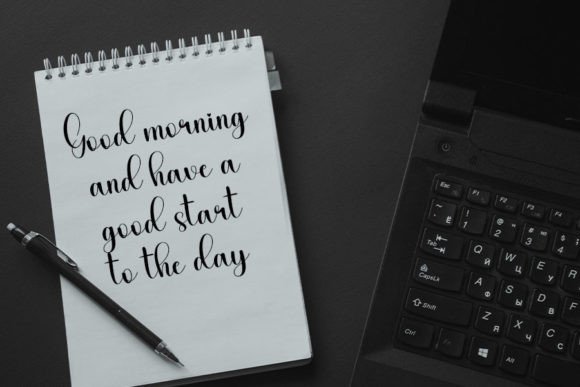 Good morning
and have a
good start
to the day
Esc F1 F2 F3 F4
Tab Q Й W Ц E У
CapsLk A Ф S Ы D В
Shift Z Я X Ч C С
Ctrl Fn Alt